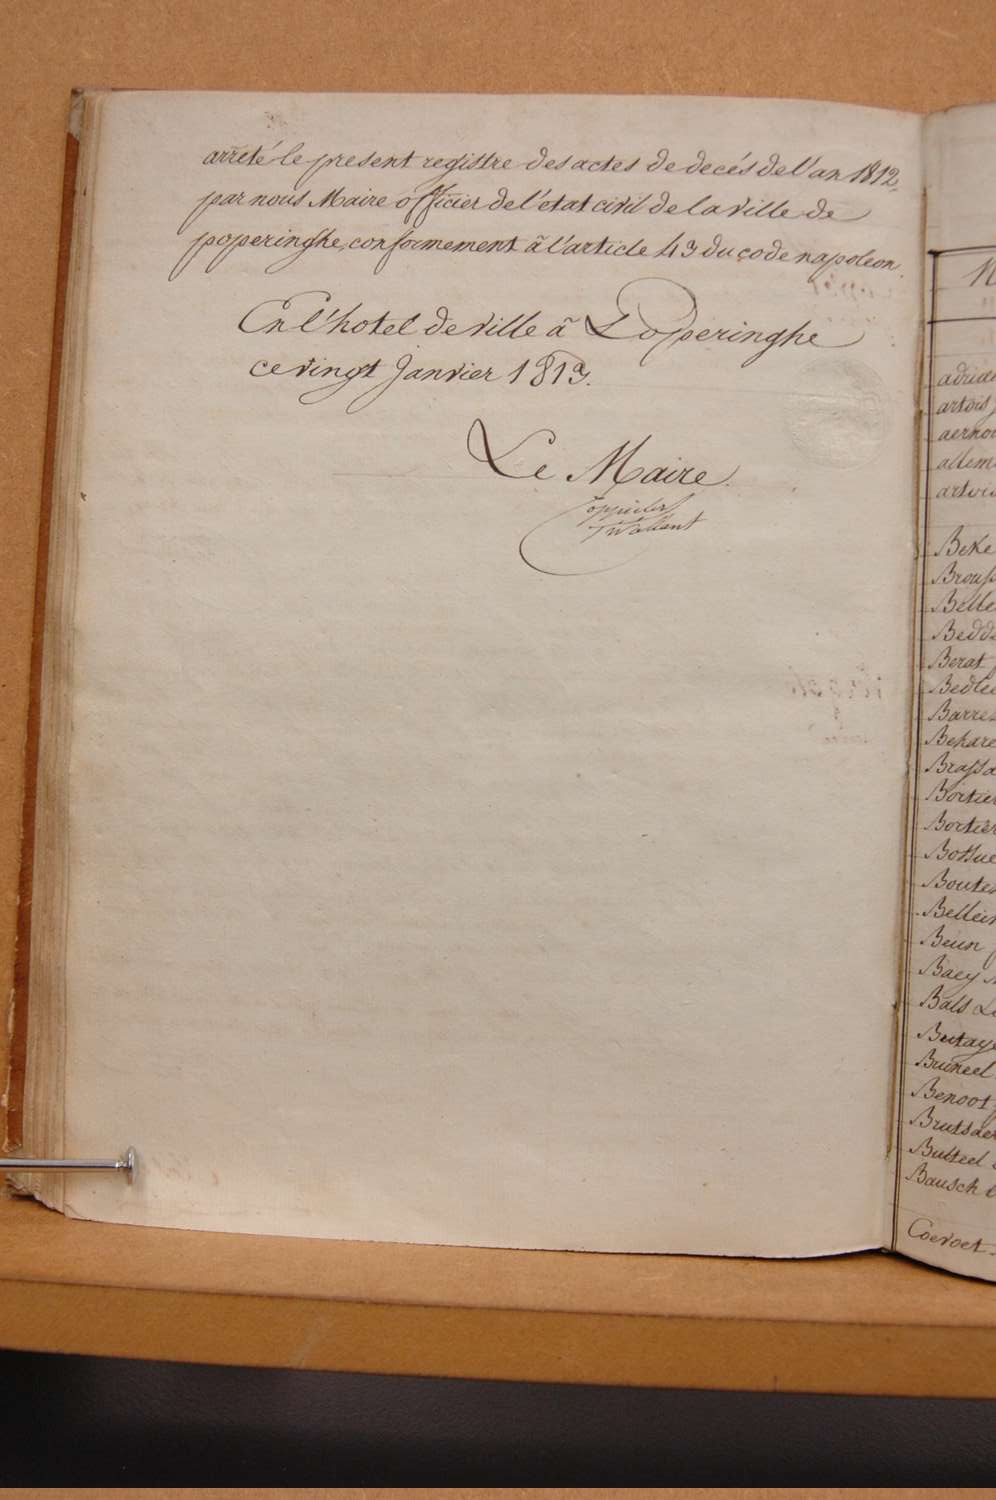 arreté le present registre des actes de decés de l'an 1812,
par nous Maire officier de l'etat civil de la ville de
poperinghe, conformement ã l'article 43 du code napoleon.
En l'hotel de ville ã Poperinghe
ce vingt Janvier 1813.
Le Maire.
artois
aernou
allem
artois
Beke
Brousp
Belle
Bedde
Berat
Bedle
Barre
Behare
Brassa
Bortier
Bortier
Bossue
Boute
Bellein
Beun
Baey
Bals
Butaye
Bruneel
Benoot
Brutsaer
Bulteel
Bausch
Coevoet